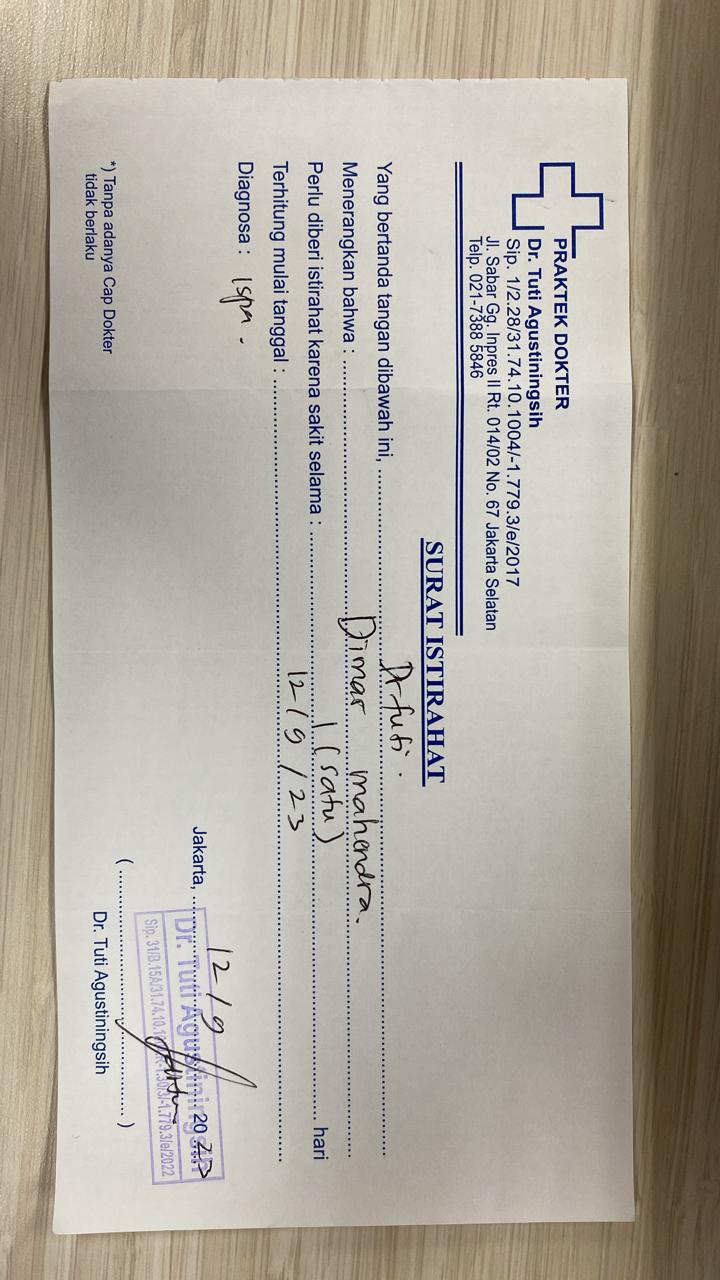 PRAKTEK DOKTER
Dr. Tuti Agustiningsih
Sip. 1/2.28/31.74.10.1004/-1.779.3/e/2017
Jl. Sabar Gg. Inpres II Rt. 014/02 No. 67 Jakarta Selatan
Telp. 021-7388 5846
SURAT ISTIRAHAT
Yang bertanda tangan dibawah ini, Dr tuti.
Menerangkan bahwa : Dimar mahendra.
Perlu diberi istirahat karena sakit selama : 1 (satu) hari
Terhitung mulai tanggal : 12/9/23
Diagnosa : Ispa.
Jakarta, 12/9 2023
Dr. Tuti Agustiningsih
Sip. 31/B.15A/31.74.10. /-1.779.3/e/2022
(..............................)
Dr. Tuti Agustiningsih
*) Tanpa adanya Cap Dokter
tidak berlaku